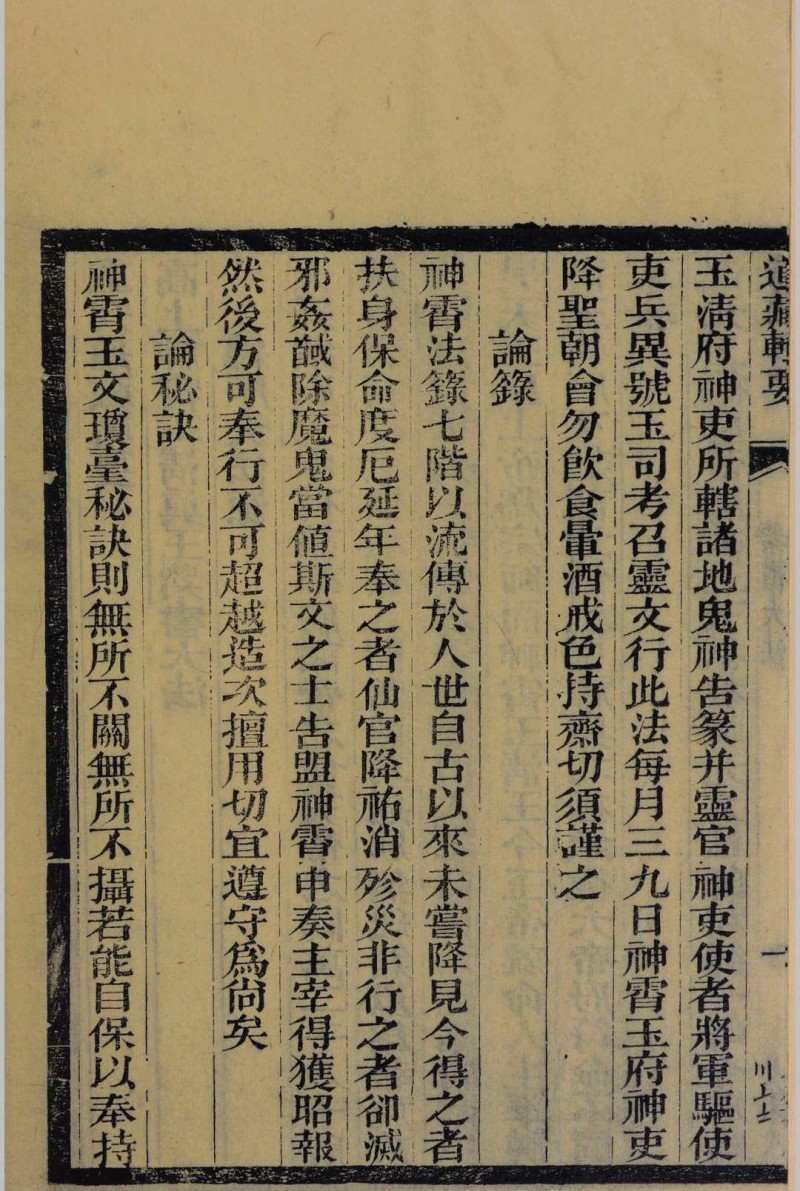 道藏輯要
一
玉清府神吏所轄諸地鬼神告篆并靈官神吏使者將軍驅使
吏兵異號玉司考召靈文行此法每月三九日神霄玉府神吏
降聖朝會勿飲食暈酒戒色持齋切須謹之
論籙
神霄法籙七階以流傳於人世自古以來未嘗降見今得之者
扶身保命度厄延年奉之者仙官降祐消殄災非行之者卻滅
邪姦馘除魔鬼當値斯文之士告盟神霄申奏主宰得獲昭報
然後方可奉行不可超越造次擅用切宜遵守爲尙矣
論秘訣
神霄玉文瓊臺秘訣則無所不關無所不攝若能自保以奉持